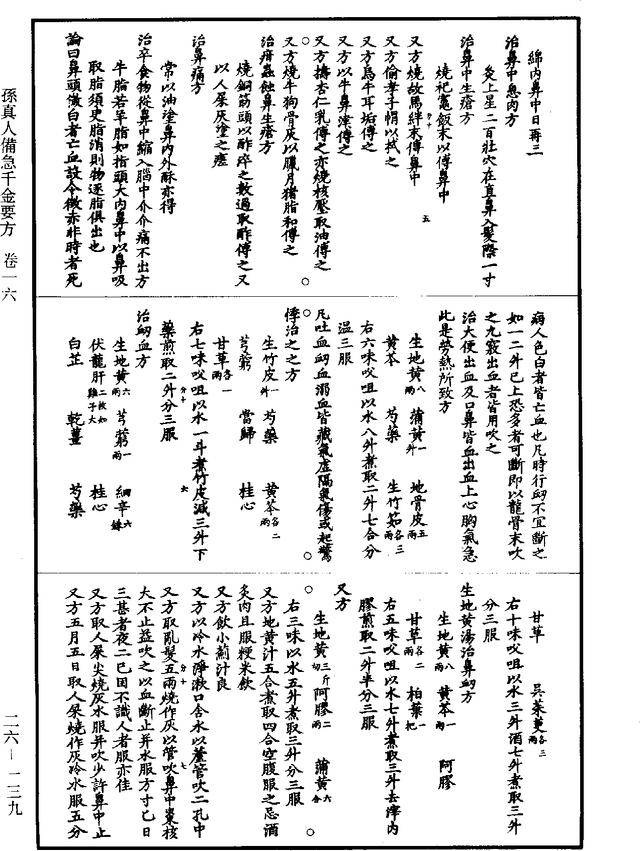 綿內鼻中日再三
治鼻中息肉方
灸上星二百壯穴在直鼻入髮際一寸
治鼻中生瘡方
燒杞𥧌飯末以傅鼻中
又方燒故馬絆末傅鼻中
五
又方偷孝子帽以拭之
又方烏牛耳垢傅之
又方以牛鼻津傅之
又方擣杏仁乳傅之亦燒核壓取油傅之
又方燒牛狗骨灰以臘月猪脂和傅之
治疳蟲蝕鼻生瘡方
燒銅筯頭以酢淬之數過取酢傅之又
以人屎灰塗之瘥
治鼻痛方
常以油塗鼻內外酥亦得
治卒食物從鼻中縮入腦中介介痛不出方
牛脂若羊脂如指頭大內鼻中以鼻吸
取脂須臾脂消則物逐脂俱出也
論曰鼻頭微白者亡血設令微赤非時者死
病人色白者皆亡血也凡時行衂不宜斷之
如一二升已上恐多者可斷即以龍骨末吹
之九竅出血者皆用吹之
治大便出血及口鼻皆血出血上心胸氣急
此是勞熱所致方
生地黃八兩 蒲黃一升 地骨皮五兩
黃芩 芍藥 生竹茹各三兩
右六味㕮咀以水八升煮取二升七合分
溫三服
凡吐血衂血溺血皆臟氣虛隔氣傷或起驚
悸治之之方
生竹皮一升 芍藥 黃芩各二兩
芎藭 當歸 桂心
甘草各一兩
右七味㕮咀以水一斗煮竹皮減三升下
藥煎取二升分三服
治衂血方
生地黃六兩 芎藭一兩 細辛六銖
伏龍肝二枚如雞子大 桂心
白芷 乾薑 芍藥
甘草 吳茱萸各三兩
右十味㕮咀以水三升酒七升煮取三升
分三服
生地黃湯治鼻衂方
生地黃八兩 黃芩一兩 阿膠
甘草各二兩 柏葉一把
右五味㕮咀以水七升煮取三升去滓內
膠煎取二升半分三服
又方
生地黃三斤切 阿膠二兩 蒲黃六合
右三味以水五升煮取三升分三服
又方地黃汁五合煮取四合空腹服之忌酒
炙肉且服粳米飲
又方飲小薊汁良
又方以冷水淨漱口含水以蘆管吹二孔中
又方取亂髮五兩燒作灰以管吹鼻中棗核
大不止益吹之以血斷止并水服方寸匕日
三甚者夜二已困不識人者服亦佳
又方取人屎尖燒灰水服并吹少許鼻中止
又方五月五日取人屎燒作灰冷水服五分
孫真人備急千金要方 卷一六
二六—一三九